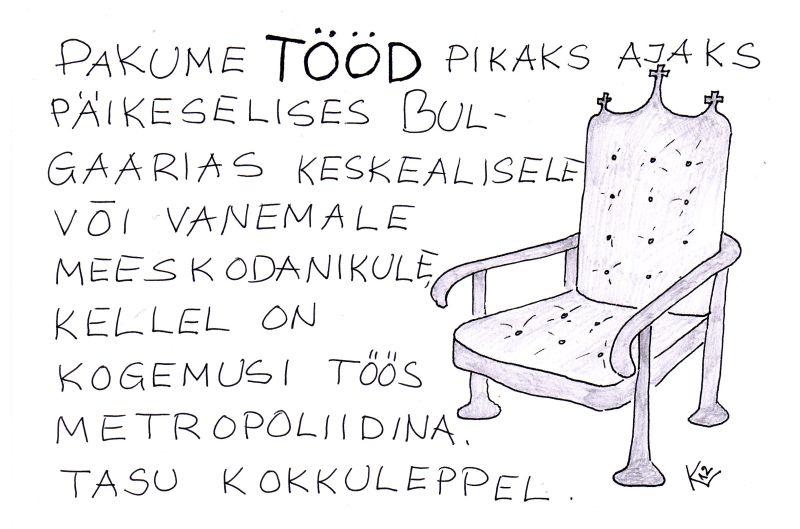 PAKUME TÖÖD PIKAKS AJAKS
PÄIKESELISES BUL-
GAARIAS KESKEALISELE
VÕI VANEMALE
MEESKODANIKULE,
KELLEL ON
KOGEMUSI TÖÖS
METROPOLIIDINA.
TASU KOKKULEPPEL.